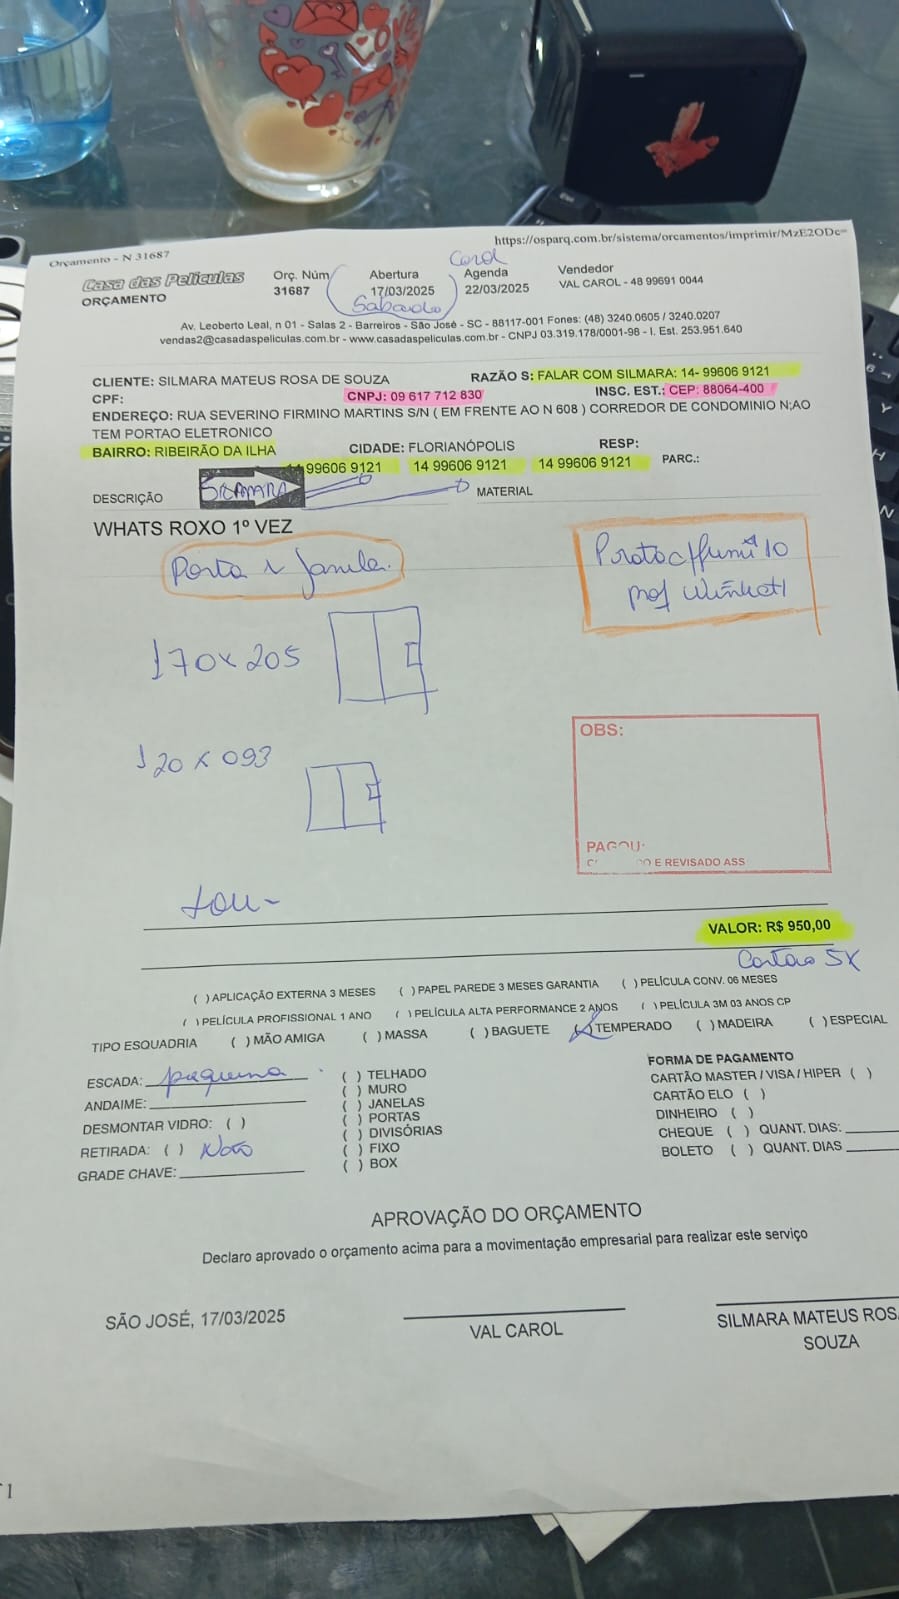 LOVE
Orçamento - N 31687
https://osparq.com.br/sistema/orcamentos/imprimir/MzE2ODc=
Casa das Películas
ORÇAMENTO
Orç. Núm
31687
Abertura
17/03/2025
Sabado
Carol
Agenda
22/03/2025
Vendedor
VAL CAROL - 48 99691 0044
Av. Leoberto Leal, n 01 - Salas 2 - Barreiros - São José - SC - 88117-001 Fones: (48) 3240.0605 / 3240.0207
vendas2@casadaspeliculas.com.br - www.casadaspeliculas.com.br - CNPJ 03.319.178/0001-98 - I. Est. 253.951.640
CLIENTE: SILMARA MATEUS ROSA DE SOUZA
RAZÃO S: FALAR COM SILMARA: 14- 99606 9121
CPF:
CNPJ: 09 617 712 830
INSC. EST.: CEP: 88064-400
ENDEREÇO: RUA SEVERINO FIRMINO MARTINS S/N ( EM FRENTE AO N 608 ) CORREDOR DE CONDOMINIO N;AO
TEM PORTAO ELETRONICO
BAIRRO: RIBEIRÃO DA ILHA
CIDADE: FLORIANÓPOLIS
RESP:
14 99606 9121
14 99606 9121
14 99606 9121
PARC.:
DESCRIÇÃO
MATERIAL
WHATS ROXO 1º VEZ
Porta e Janela.
Prata c/fumê 10
prof
170 x 205
120 x 093
OBS:
PAGOU:
O E REVISADO ASS
VALOR: R$ 950,00
Cartao 5X
( ) APLICAÇÃO EXTERNA 3 MESES ( ) PAPEL PAREDE 3 MESES GARANTIA ( ) PELÍCULA CONV. 06 MESES
( ) PELÍCULA PROFISSIONAL 1 ANO ( ) PELÍCULA ALTA PERFORMANCE 2 ANOS ( ) PELÍCULA 3M 03 ANOS CP
TIPO ESQUADRIA ( ) MÃO AMIGA ( ) MASSA ( ) BAGUETE ( ) TEMPERADO ( ) MADEIRA ( ) ESPECIAL
ESCADA: pequena
ANDAIME:
DESMONTAR VIDRO: ( )
RETIRADA: ( ) Não
GRADE CHAVE:
( ) TELHADO
( ) MURO
( ) JANELAS
( ) PORTAS
( ) DIVISÓRIAS
( ) FIXO
( ) BOX
FORMA DE PAGAMENTO
CARTÃO MASTER / VISA / HIPER ( )
CARTÃO ELO ( )
DINHEIRO ( )
CHEQUE ( ) QUANT. DIAS:
BOLETO ( ) QUANT. DIAS
APROVAÇÃO DO ORÇAMENTO
Declaro aprovado o orçamento acima para a movimentação empresarial para realizar este serviço
SÃO JOSÉ, 17/03/2025
VAL CAROL
SILMARA MATEUS ROS
SOUZA